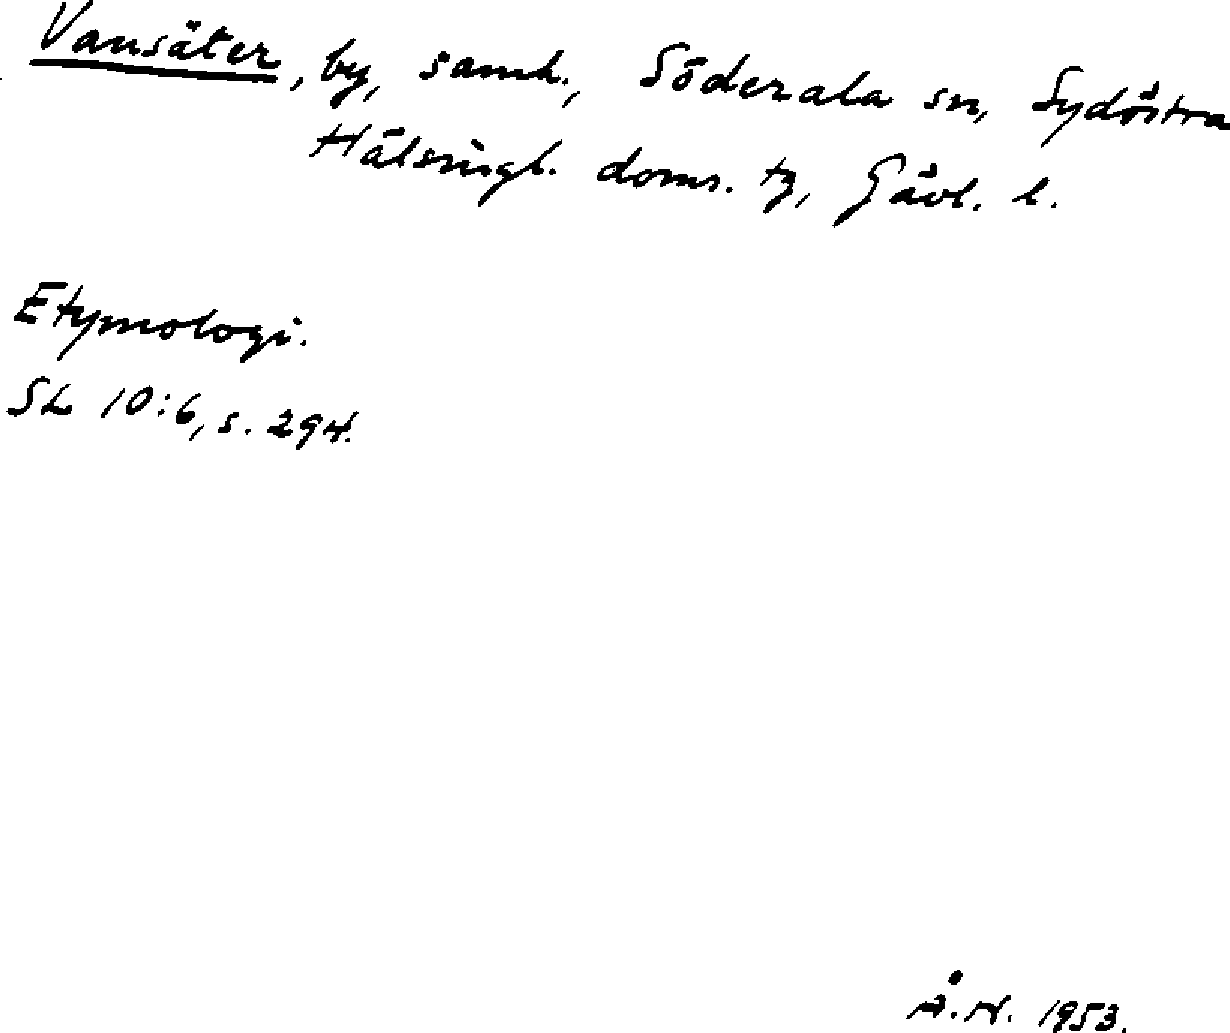 Vansäter, by, samh., Söderala sn, Sydöstra
Hälsingl. doms. tg, Gävl. l.
Etymologi.
SL 10:6, s. 294.
Å.N. 1953.